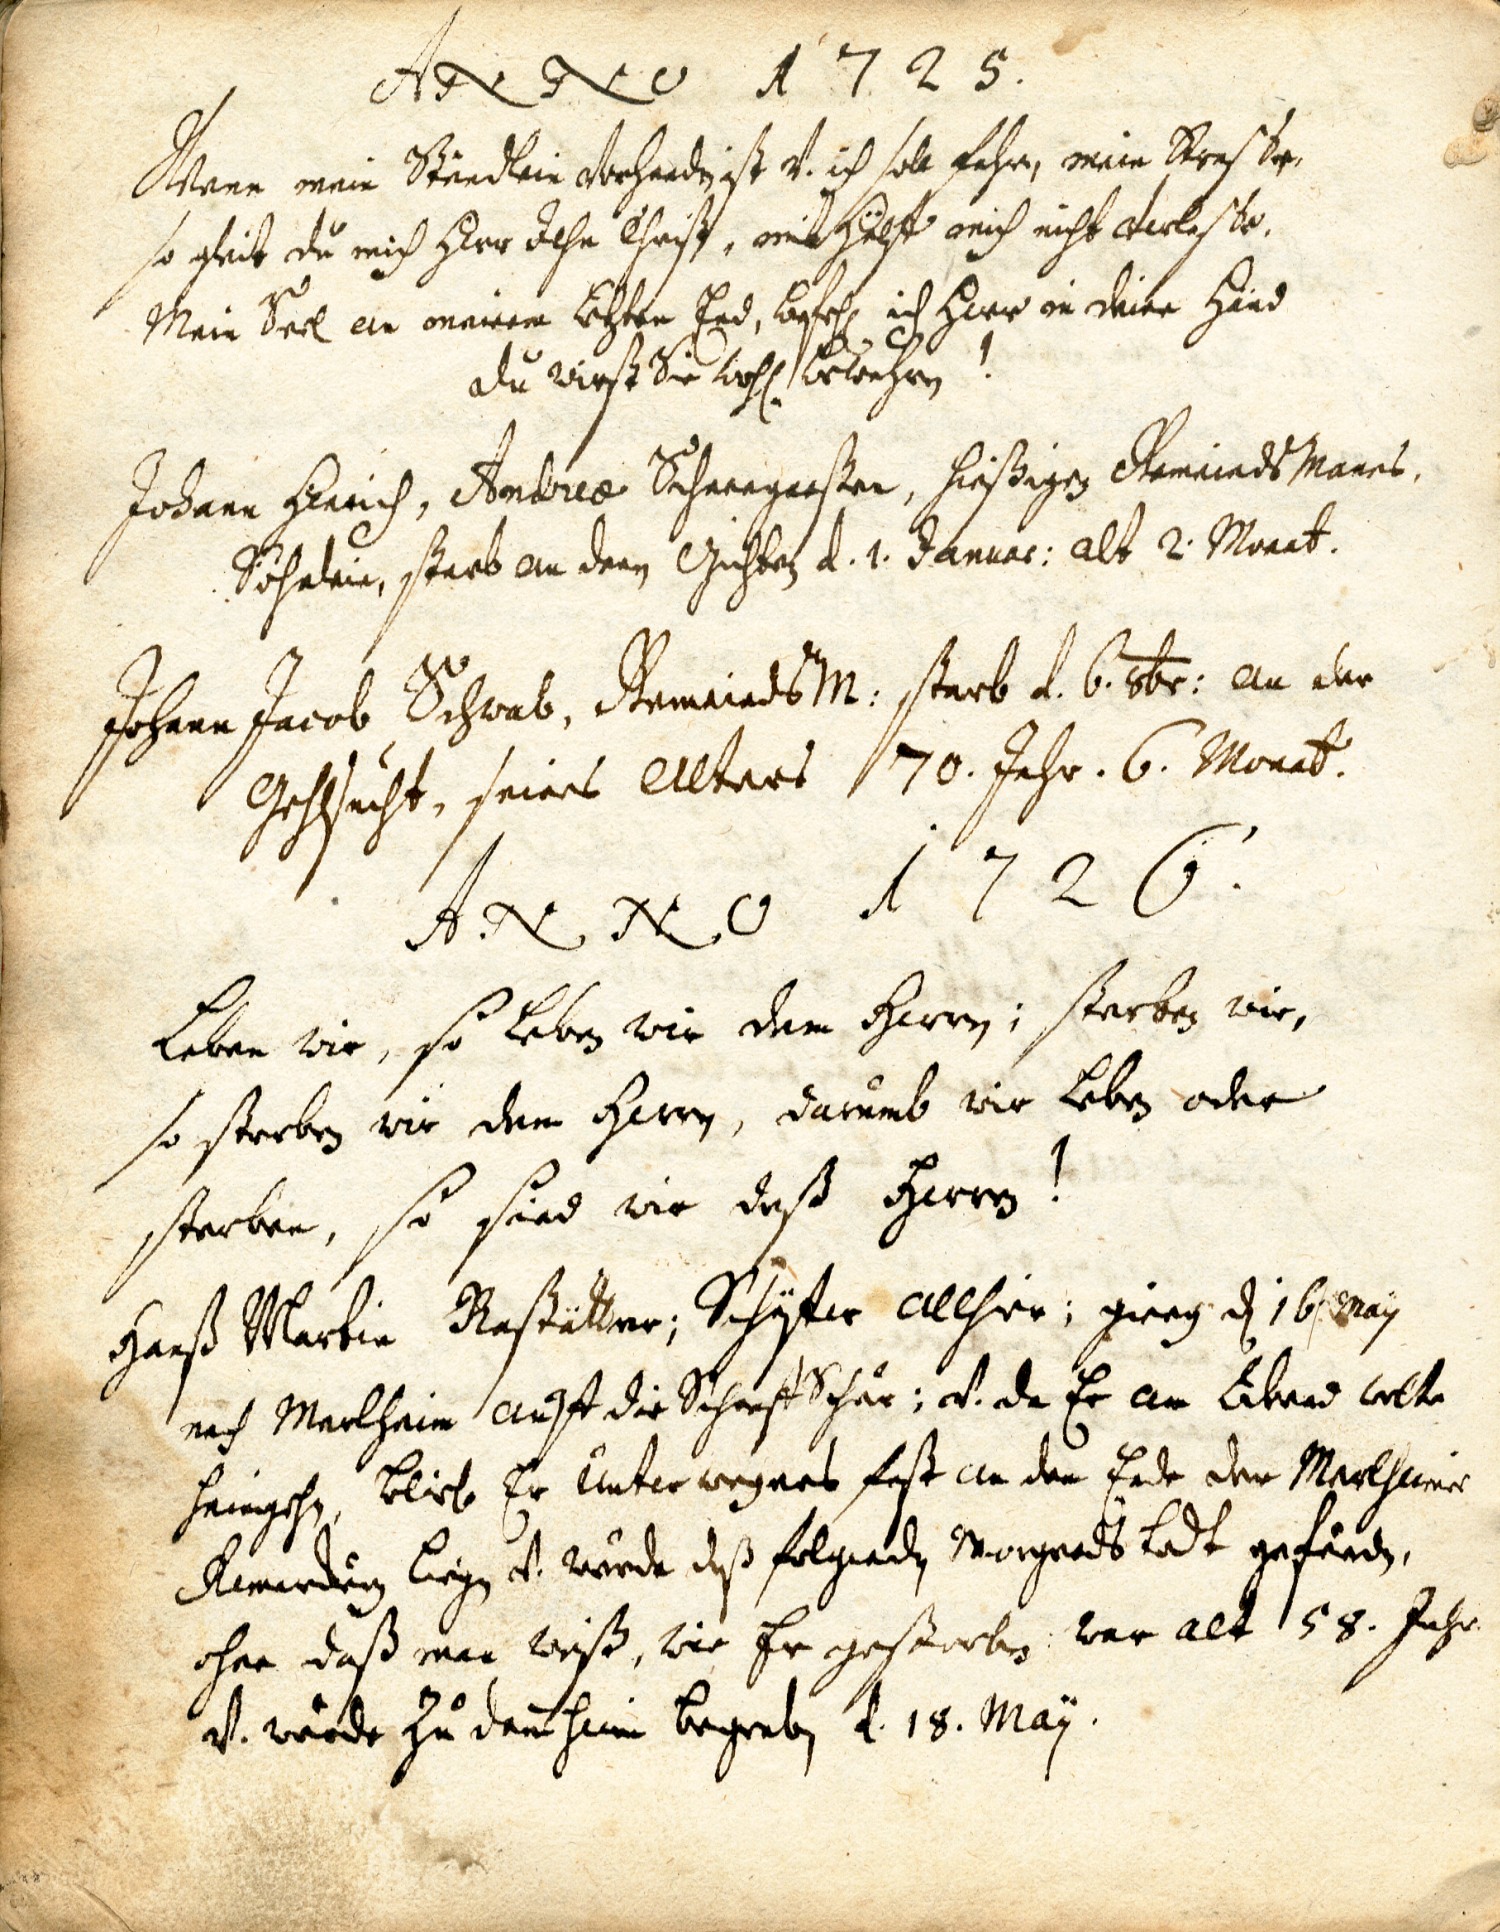 ANNO 1725.
Wenn mein Stündlein vorhanden ist v. ich soll fahrn, mein Strasse,
so gleit du mich Herr Jesu Christ, mit Hülff mich nicht verlasse.
Mein Seel an meinem letzten End, befehl ich Herr in deine Händ
du wirst Sie wohl bewahren!
Johann Henrich, Andreæ Schneegansen, hießigen Gemeinds Manns,
Söhnlein, starb an denen Gichtern d. 1. Januar: alt 2. Monat.
Johann Jacob Schwab, Gemeinds M: starb d. 6. 8br: an der
Gehlsucht, seines Alters 70. Jahr. 6. Monat.
ANNO 1726.
Leben wir, so leben wir dem Herren; sterben wir,
so sterben wir dem Herren, darumb wir leben oder
sterben, so sind wir deß Herren!
Hanß Martin Rastätter; Schäffer allhier; gieng d. 16. May
nach Marlheim auff die Schaaff Schur; v. da Er am Abend wolte
heimgehn, blieb Er unterwegens fast an dem Ende der Marlheimer
liegen v. wurde deß folgenden Morgends todt gefunden,
ohne daß man weiß, wie Er gestorben: war alt 58. Jahr
v. wurde zu begraben d. 18. May.